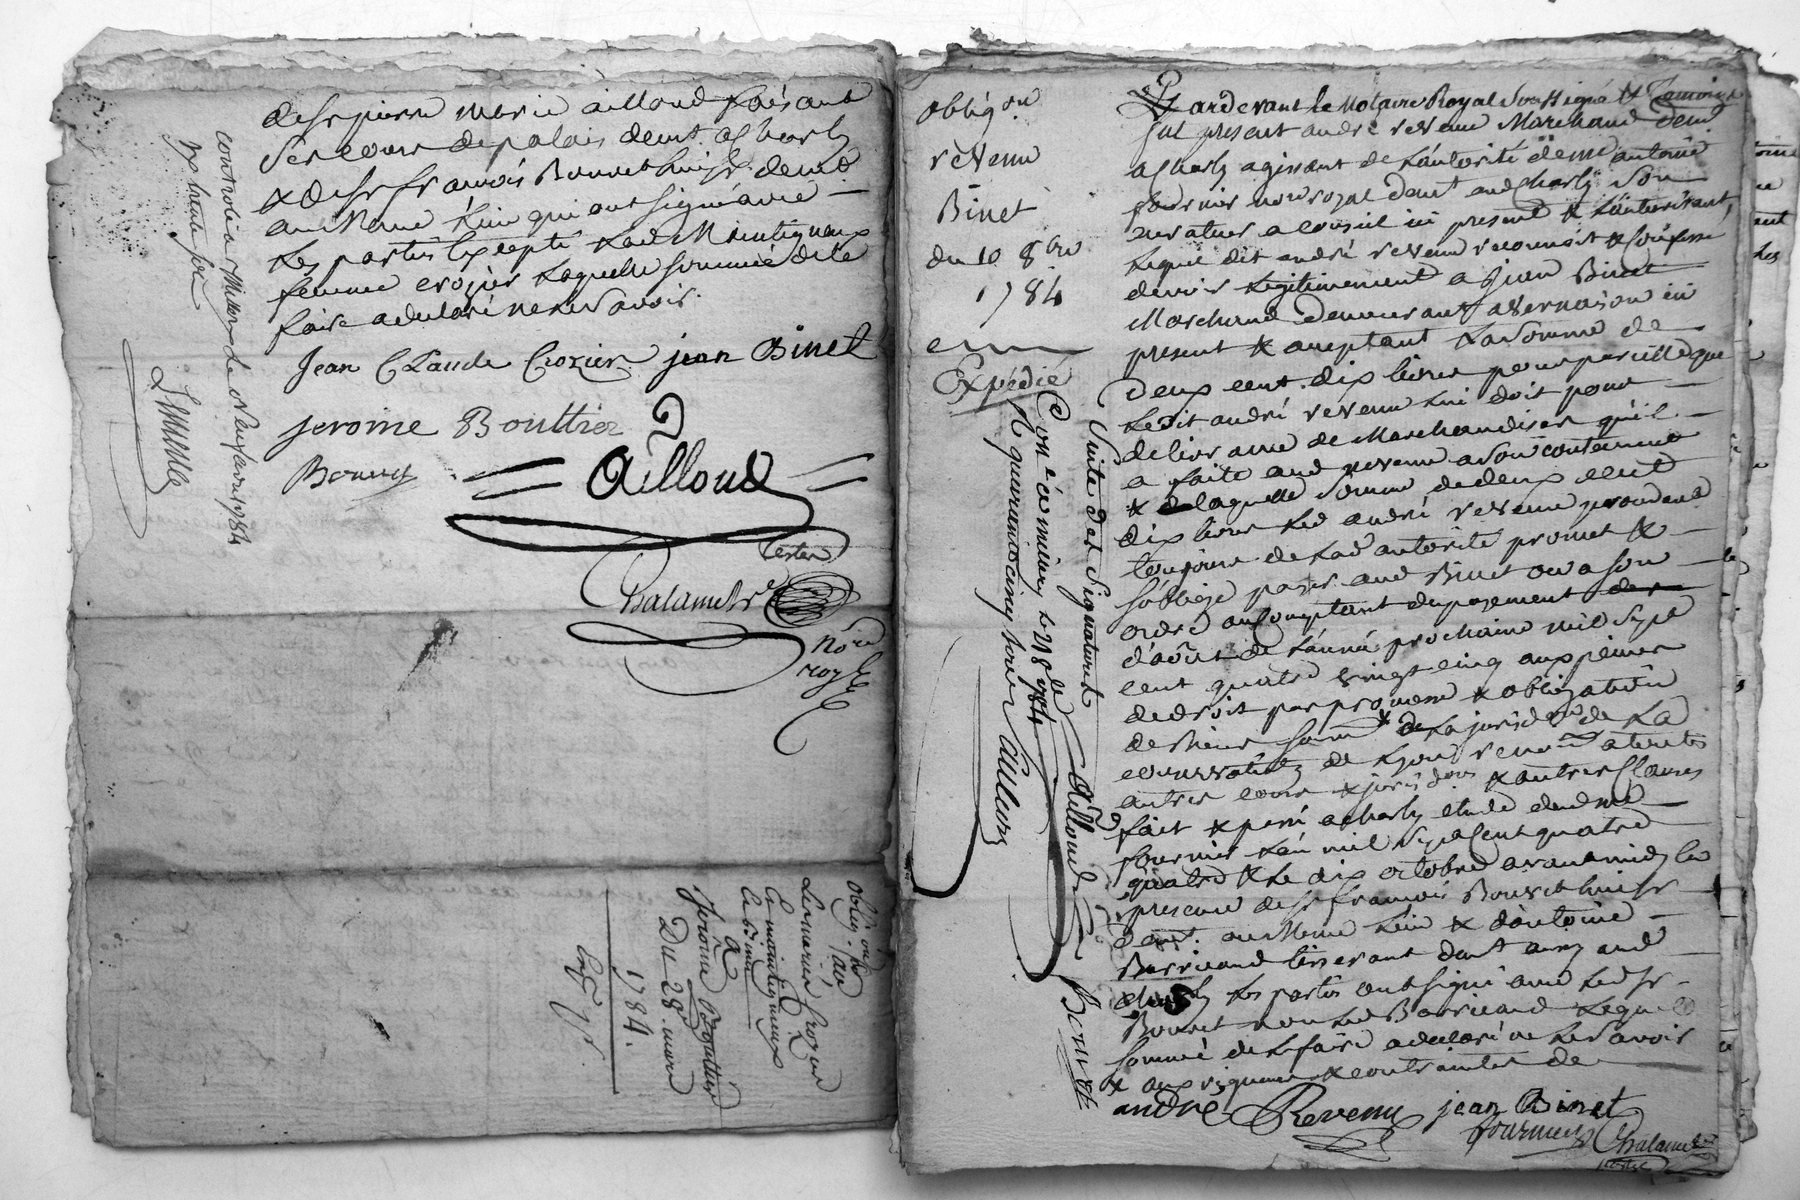 de sr pierre marie ailloud faisant
ses cours de palais demt a charly
& de sr francois Bouvet huissr demt
au meme lieu qui ont signé avec
les parties excepté lad Montigneux
femme crozier laquelle sommée de le
faire a declaré ne le savoir.
Jean Claude Crozier jean Binet
jerome Boulltier
Bouvet
Ailloud
Chalamel
nore
royl
controlé a Millery le neuf avril 1784
obligaon
Jerome
Du 28 mars
1784.
obligon
revenu
Binet
du 10 8bre
1784
Expedié
Pardevant le Notaire Royal Soussigné & Temoins
fut present andré revenu Marchand demt
a Charly agissant de l'autorité de me antoine
fournier nore royal demt aud Charly son
curateur a conseil ici present & l'autorisant,
lequel dit andré revenu reconnoit & confesse
devoir legitimement a jean Binet
Marchand demeurant a vernaison ici
present & acceptant la somme de
Deux cent dix livres pour pareille que
ledit andré revenu lui doit pour
delivrance de Marchandises qu'il
a faite aud revenu a son contentement
& de laquelle somme de deux cent
dix livres led andré revenu procedant
toujours de lad autorité promet &
s'oblige payer aud Binet ou a son
ordre au comptant du payement
d'août de l'année prochaine mil sept
cent quatre vingt cinq aux peines
de droit par promesse & obligation
de biens soumn de la jurisdon de la
conservation de Lyon renonn a toutes
autres cours & jurisdons & autres clauses
fait & passé a charly etude dud me
fournier l'an mil sept cent quatre
quatre & le dix octobre avant midy en
presence de sr francois Bouvet huissr
demt. au meme lieu & d'antoine
Barricand tisserant demt aussy aud
charly les parties ont signé avec led sr
Bouvet non led Barricand lequel
sommé de le faire a declaré ne le savoir
& aux rigueurs & contraintes de
andré Revenu jean Binet
fournier Chalamel
Suite des Signatures Ailloud Bouvet